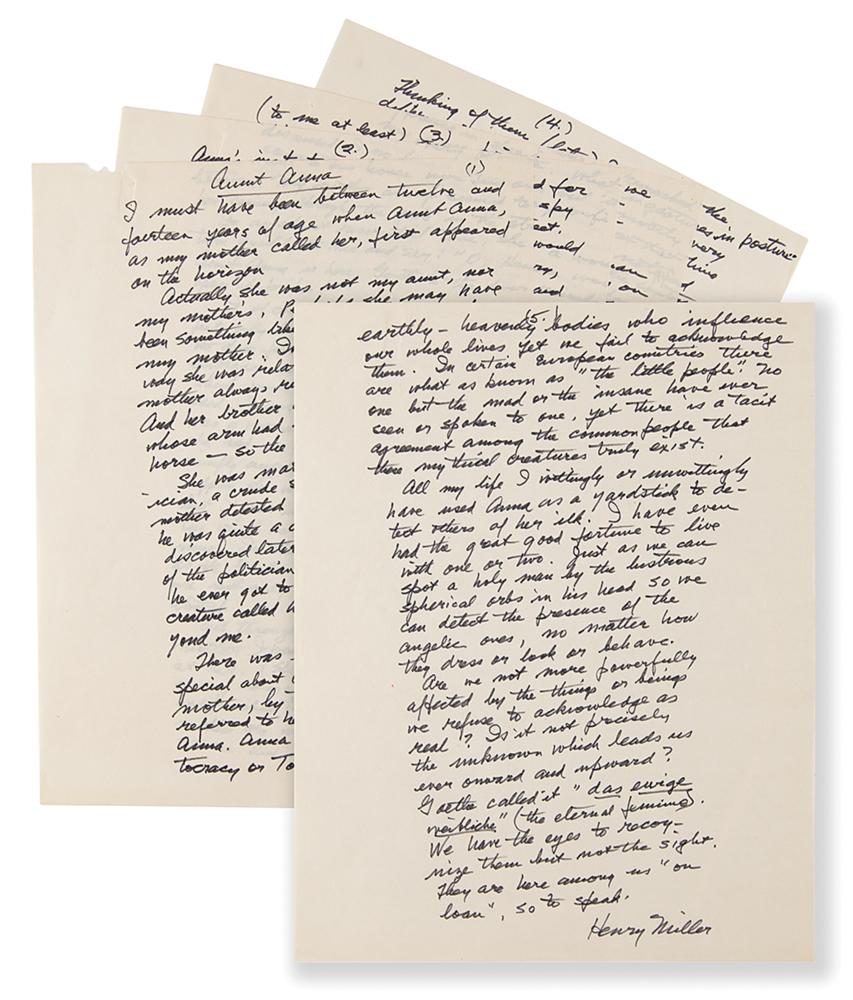 Thinking of them
(4.)
(to me at least) (3.)
(2.)
(1)
Aunt Anna
I must have been between twelve and
fourteen years of age when Aunt Anna,
as my mother called her, first appeared
on the horizon
Actually she was not my aunt, nor
my mother's. she may have
been something like
my mother.
way she was rela
mother always re
And her brother
whose arm had
horse — so the
She was mar
ician, a crude s
mother detested
he was quite a
discovered later
of the politician
he ever got to
creature called
yond me.
There was
special about
mother, by
referred to h
Anna. Anna
tocracy or To
d for
spy
eet.
would
ry,
and
we
an
on
the
es in posture
very
time
(5.)
earthly — heavenly bodies who influence
our whole lives yet we fail to acknowledge
them. In certain European countries there
are what as known as "the little people." No
one but the mad or the insane have ever
seen or spoken to one, yet there is a tacit
agreement among the common people that
these mythical creatures truly exist.
All my life I wittingly or unwittingly
have used Anna as a yardstick to de-
tect others of her ilk. I have even
had the great good fortune to live
with one or two. Just as we can
spot a holy man by the lustrous
spherical orbs in his head so we
can detect the presence of the
angelic ones, no matter how
they dress or look or behave.
Are we not more powerfully
affected by the things or beings
we refuse to acknowledge as
real? Is it not precisely
the unknown which leads us
ever onward and upward?
Goethe called it "das ewige
weibliche" (the eternal feminine).
We have the eyes to recog-
nize them but not the sight.
They are here among us "on
loan", so to speak.
Henry Miller